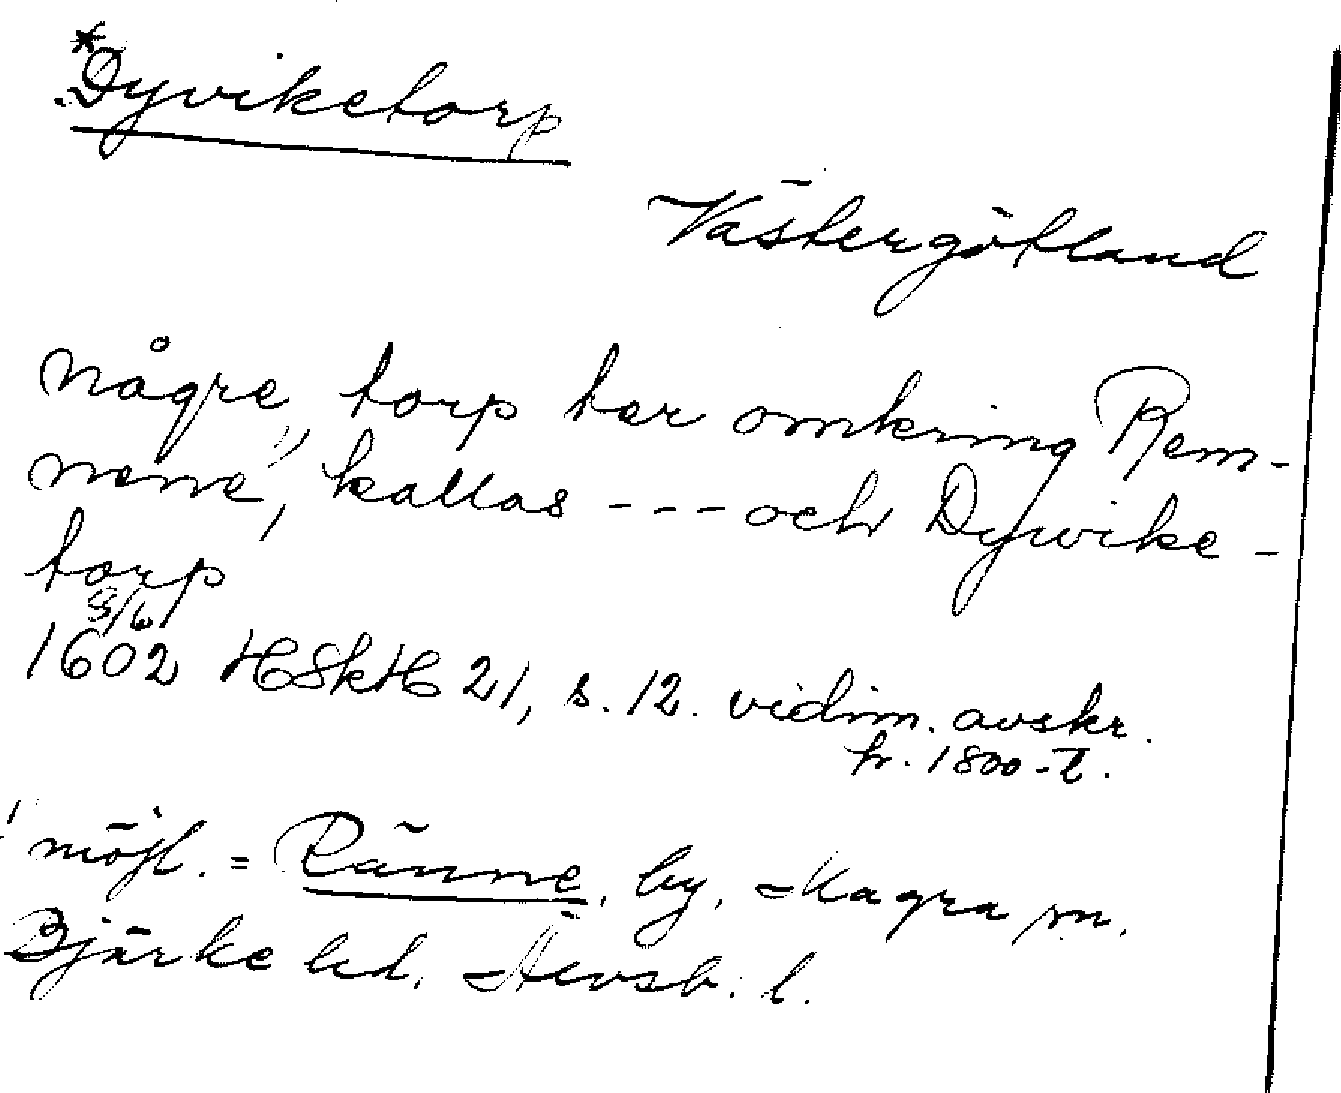 *Dyviketorp
Västergötland
någre, torp ter omkring Rem-
nene¹, kallas --- och Dywike-
torp
8/6
1602 HSkH 21, s. 12. vidim. avskr.
fr. 1800-t.
¹ möjl. = Ränne, by, Magra sn.
Bjärke hd, Älvsb. l.